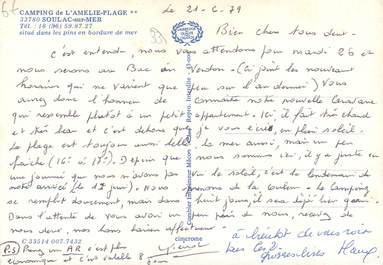 CAMPING de L'AMELIE-PLAGE **
33780 SOULAC-sur-MER
Tél. : 16 (96) 59.87.27
situé dans les pins en bordure de mer
le 21-6-79
Bien chers tous deux -
c'est entendu, nous vous attendons pour mardi 26 et
nous serons au Bac du Verdon. (Ci joint les nouveaux
horaires qui ne varient que peu sur l'an dernier) Vous
aurez donc l'honneur de connaître notre nouvelle Caravane
qui ressemble plutôt à un petit appartement. Ici, il fait très chaud
et très beau et c'est dehors que je vous écris, en plein soleil.
La plage est toujours aussi belle, la mer aussi, mais un peu
fraîche (16° à 17°). Depuis que nous sommes ici, il y a juste eu
une journée que nous n'avons pas vu le soleil, c'est le lendemain de
notre arrivée (le 1er juin). Nous prenons de la couleur. Le Camping
se remplit doucement, mais dans huit jours, il sera déjà bien garni.
Dans l'attente de vous avoir un peu près de nous, recevez de
nous deux, nos bons baisers affectueux.
à bientôt de vous voir
tous les 2
grosses bises
PS) Prenez un AR c'est plus
économique et c'est valable 8 jours
C 33514 007.7432
cim/crome